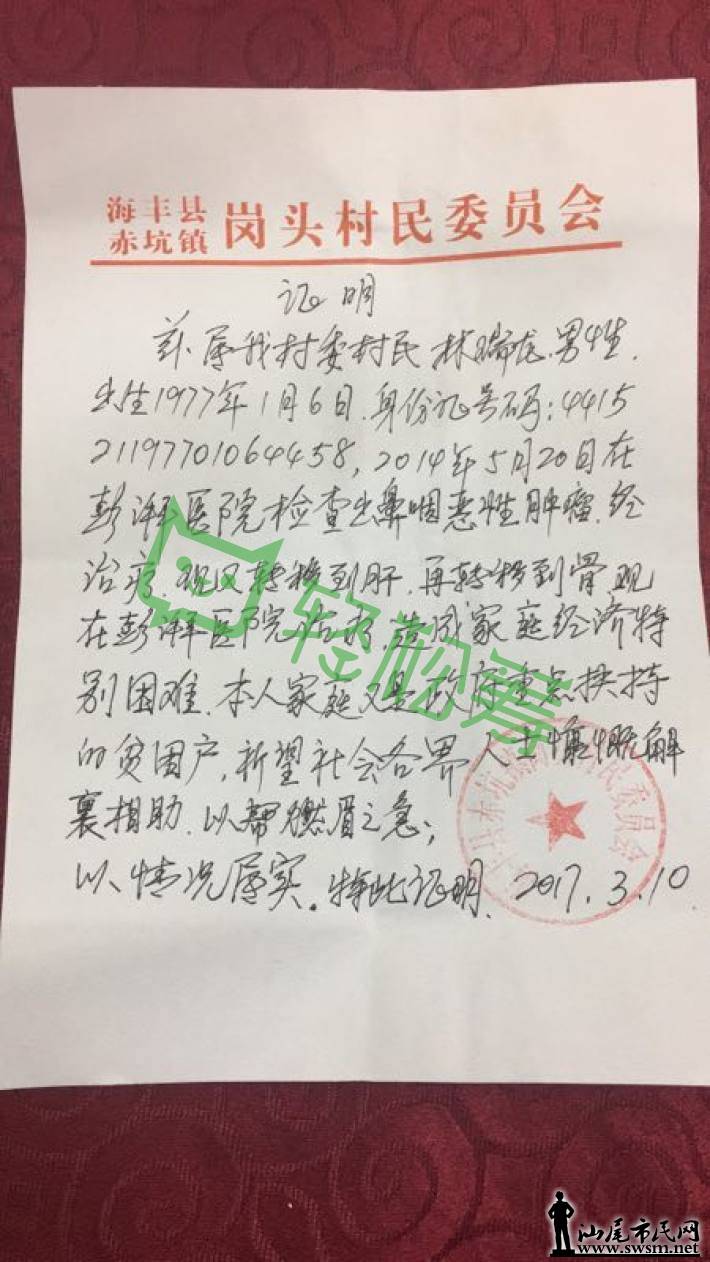 海丰县
赤坑镇
岗头村民委员会
证明
兹属我村委村民林瑞龙,男性,
出生1977年1月6日,身份证号码:4415
21197701064458,2014年5月20日在
彭湃医院检查出鼻咽恶性肿瘤,经
治疗,现又转移到肝,再转移到骨现
在彭湃医院治疗,造成家庭经济特
别困难,本人家庭又是政府重点扶持
的贫困户,祈望社会各界人士慷慨解
囊相助,以帮燃眉之急;
以情况属实。特此证明,2017.3.10
轻松筹
赤坑镇 村民委员会
汕尾市民网
www.swsm.net